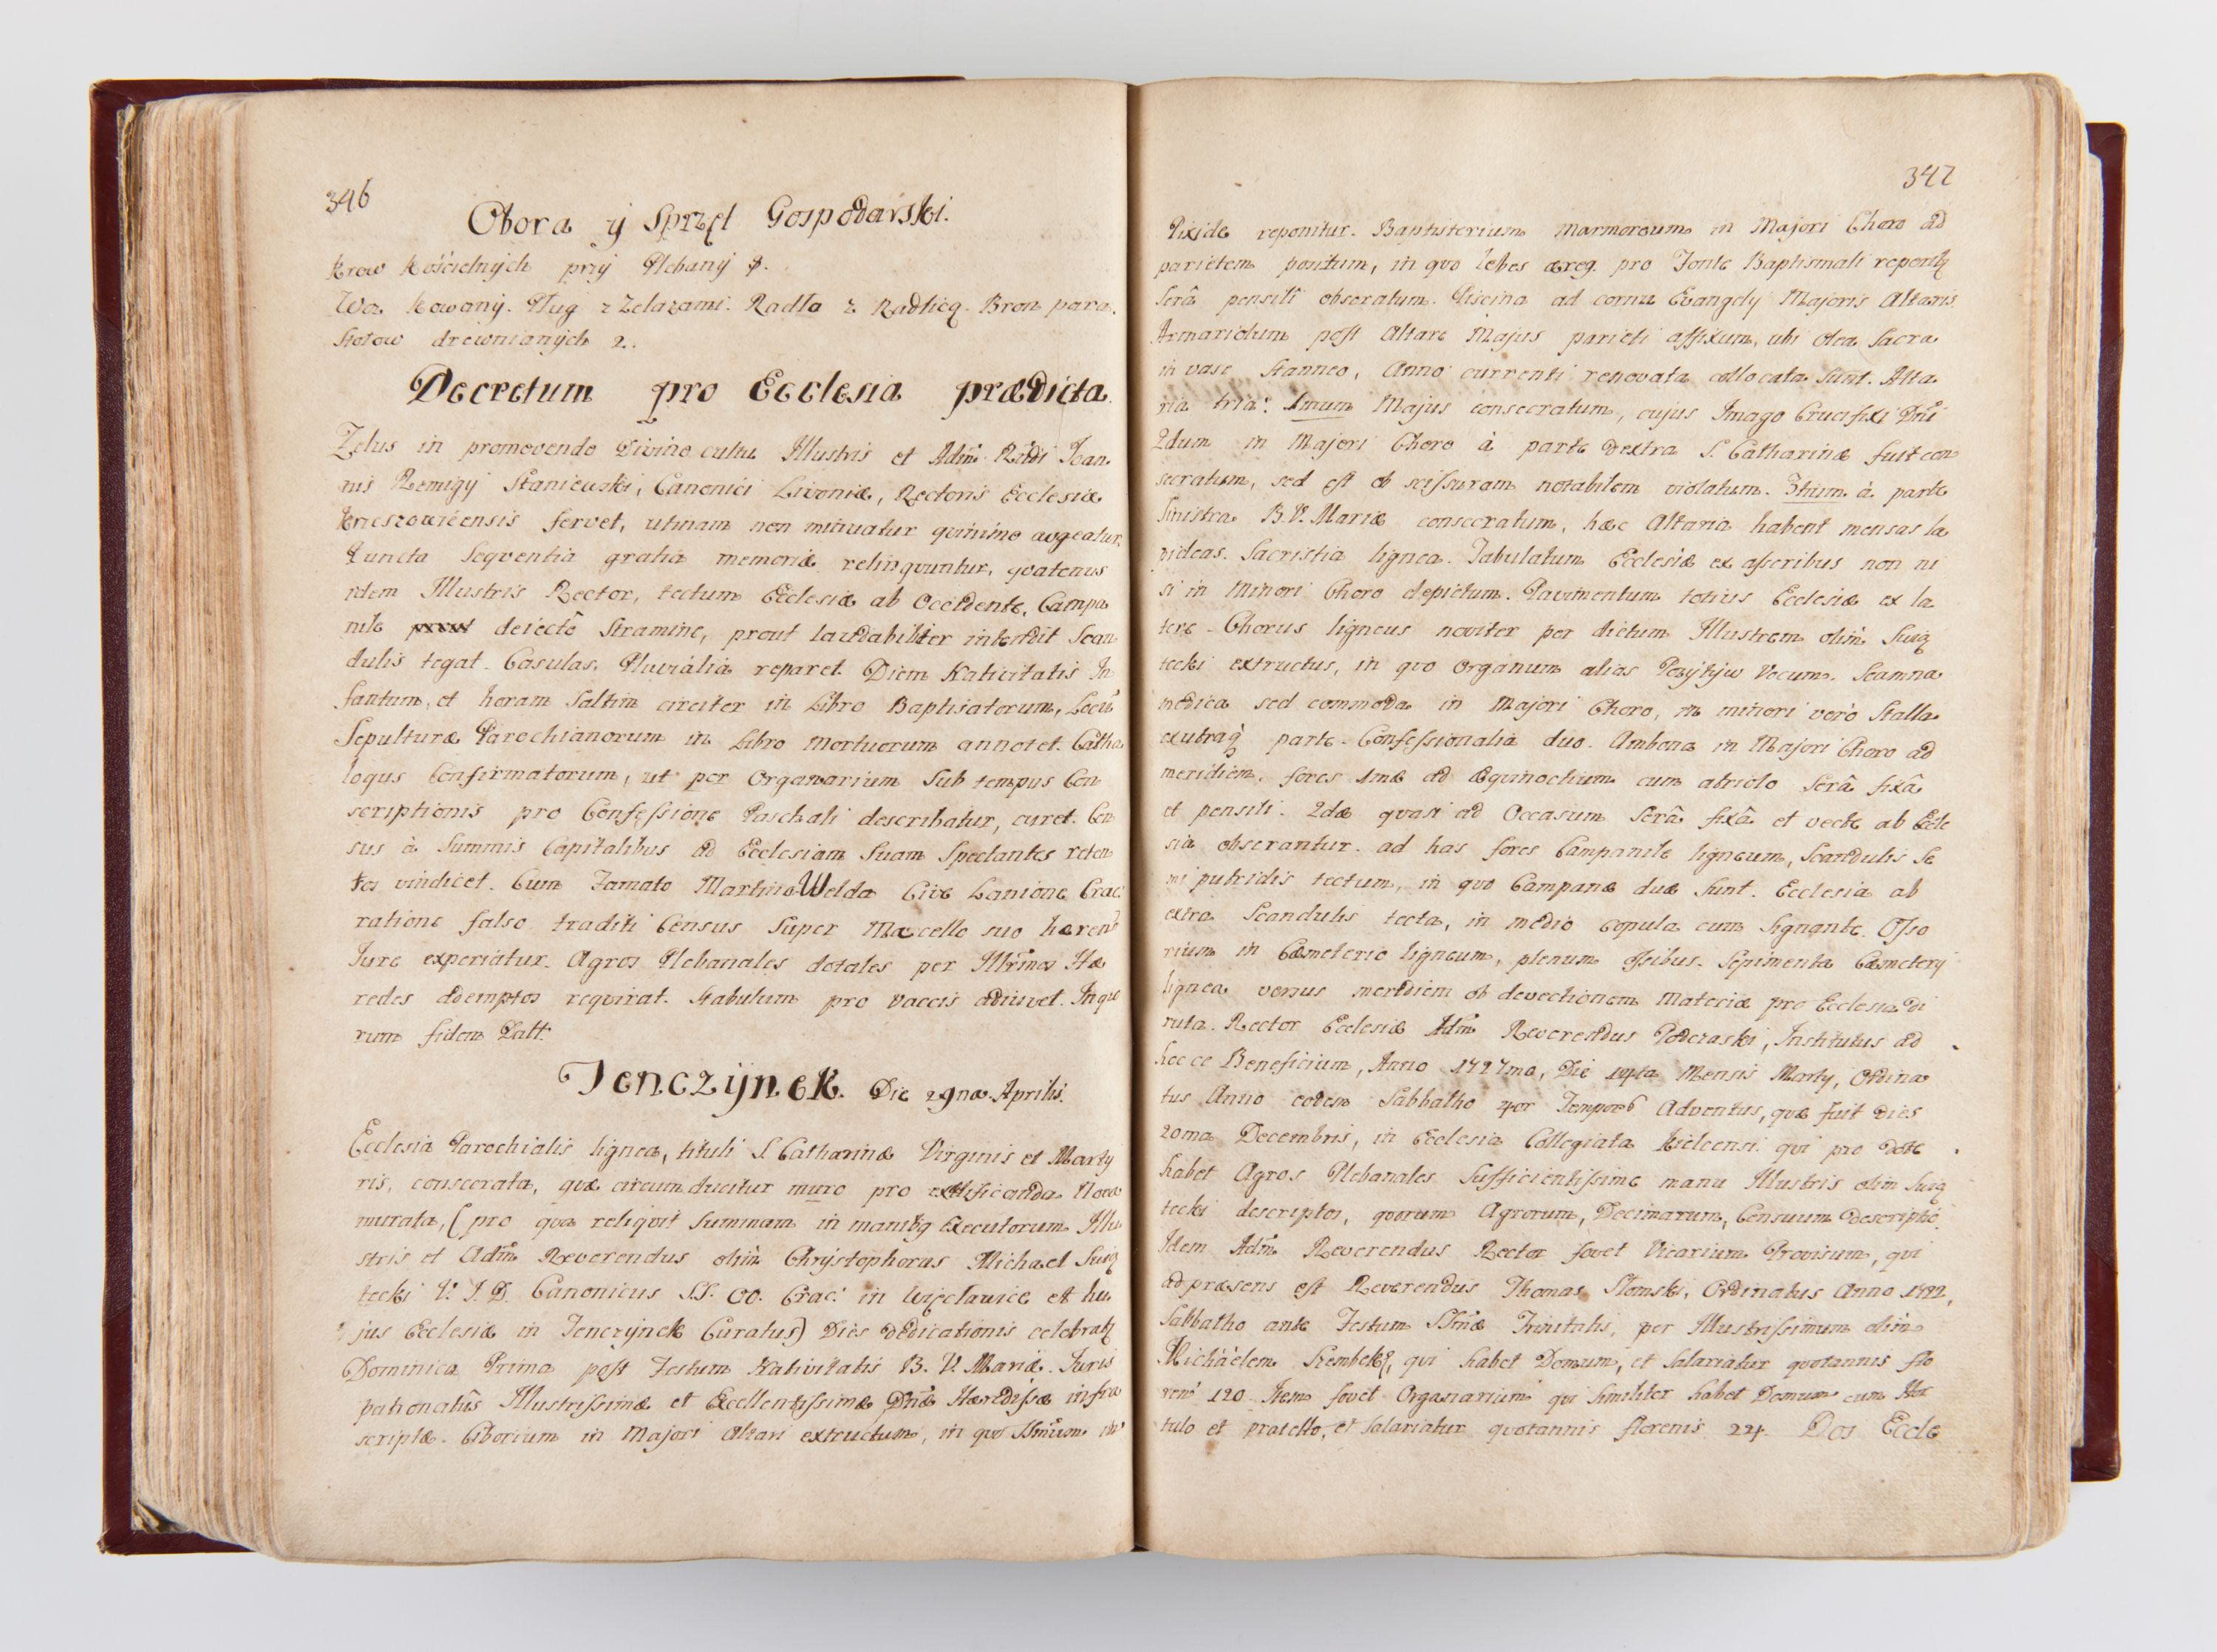 346
Obora ÿ Sprzęt Gospodarski.
Krow Kościelnÿch przÿ Plebanÿ
Woz Kowanÿ. Pług z Zelazami. Radło z Radlicą. Bron para.
Stołow drewnianÿch 2.
Decretum pro Ecclesia prædicta.
Zelus in promovendo Divino cultu Illustris et Adm̄ Rńdi Ioan
nis Remigÿ Staniewski, Canonici Livoniæ, Rectoris Ecclesiæ
Krzeszoviecensis fervet, utinam non minuatur quinimo augeatur.
Puncta Seqventia gratia memoriæ relinqvuntur, qvatenus
idem Illustris Rector, tectum Ecclesiæ ab Occidente, Campa
nile deiectô Stramine, prout laudabiliter intendit Scan
dulis tegat. Casulas, Pluvialia reparet. Diem Nativitatis In
fantum, et horam Saltim circiter in Libro Baptisatorum, Locū
Sepulturæ Parochianorum in Libro Mortuorum annotet. Catha
logus Confirmatorum, ut per Organarium Sub tempus Con
scriptionis pro Confessione Paschali describatur, curet. Cen
sus à Summis Capitalibus ad Ecclesiam Suam Spectantes reten
tos vindicet. Cum Famato Martino Welda Cive Lanione Crac:
ratione falso traditi Census Super Macello suo hæren
Iure experiatur. Agros Plebanales dotales per Illr̄mos Hæ
redes ademptos reqvirat. Stabulum pro vaccis adiuvet. In quo
rum fidem Datt:
Tenczÿnek. Die 29na Aprilis.
Ecclesia Parochialis lignea, tituli S. Catharinæ Virginis et Marty
ris, consecrata, quæ circumducitur muro pro ædificanda Nova
murata, (pro qua reliqvit Summam in manibq Executorum Illu
stris et Adm̄ Reverendus olim Chrÿstophorus Michael Swię
tecki V. I. D. Canonicus SS. OO. Crac: in Więcławice et hu
jus Ecclesiæ in Tenczÿnek Curatus) Dies dedicationis celebratq
Dominica Prima post Festum Nativitatis B. V. Mariæ. Iuris
patronatûs Illustrissimæ et Excellentissimæ Dn̄æ Hæredissæ infra
scriptæ. Ciborium in Majori Altari extructum, in quo SSm̄um in
347
Pixide reponitur. Baptisterium Marmoreum in Majori Choro ad
parietem positum, in qvo lebes æreq pro Fonte Baptismali reperitq
Serâ pensili obseratum. Piscina ad cornu Evangelÿ Majoris Altaris.
Armariolum post Altare Majus parieti affixum, ubi olea Sacra
in vase Stanneo, Anno currenti renovata collocata Sunt. Alta
ria tria: 1mum Majus consecratum, cujus Imago Crucifixi Dn̄i
2dum in Majori Choro à parte dextra S. Catharinæ fuit con
secratum, sed est ob scissuram notabilem violatum. 3tium à parte
Sinistra B. V. Mariæ consecratum, hæc Altaria habent mensas la
pideas. Sacristia lignea. Tabulatum Ecclesiæ ex asseribus non ni
si in Minori Choro depictum. Pavimentum totius Ecclesiæ ex la
tere. Chorus ligneus noviter per dictum Illustrem olim Swię
tecki extructus, in qvo Organum alias Pozÿtÿw Vocum. Scamna
medica sed commoda in Majori Choro, in minori verò Stalla
exutraqʒ parte. Confessionalia duo. Ambona in Majori Choro ad
meridiem. fores 1mæ ad Æquinoctium cum atriolo Serâ fixâ
et pensili. 2dæ quasi ad Occasum Serâ fixâ et vecte ab Eccle
sia obserantur. ad has fores Campanile ligneum, Scandulis Se
mi putridis tectum, in quo Campanæ duæ Sunt. Ecclesia ab
extra Scandulis tecta, in medio copula cum Signante. Osso
rium in Cæmeterio ligneum, plenum ossibus. Sepimenta Cæmeterÿ
lignea versus meridiem ob devectionem Materiæ pro Ecclesia di
ruta. Rector Ecclesiæ Adm̄ Reverendus Podczaski, Institutus ad
hocce Beneficium, Anno 1727mo, Die 14ta Mensis Martÿ, Ordina
tus Anno eodem Sabbatho 4or Temporū Adventus, quæ fuit dies
20ma Decembris, in Ecclesia Collegiata Kielcensi. qvi pro dote
habet Agros Plebanales Sufficientissime manu Illustris olim Swię
tecki descriptos, quorum Agrorum, Decimarum, Censuum descriptio.
Idem Adm̄ Reverendus Rector fovet Vicarium Provisum, qvi
ad præsens est Reverendus Thomas Słomski, Ordinatus Anno 1722,
Sabbatho ante Festum SSm̄æ Trinitatis, per Illustrissimum olim
Michäelem Szembek, qvi habet Domum, et Salariatur quotannis flo
renis 120. Item fovet Organarium qvi Similiter habet Domum cum Hor
tulo et pratello, et Salariatur quotannis florenis 24. Dos Eccle